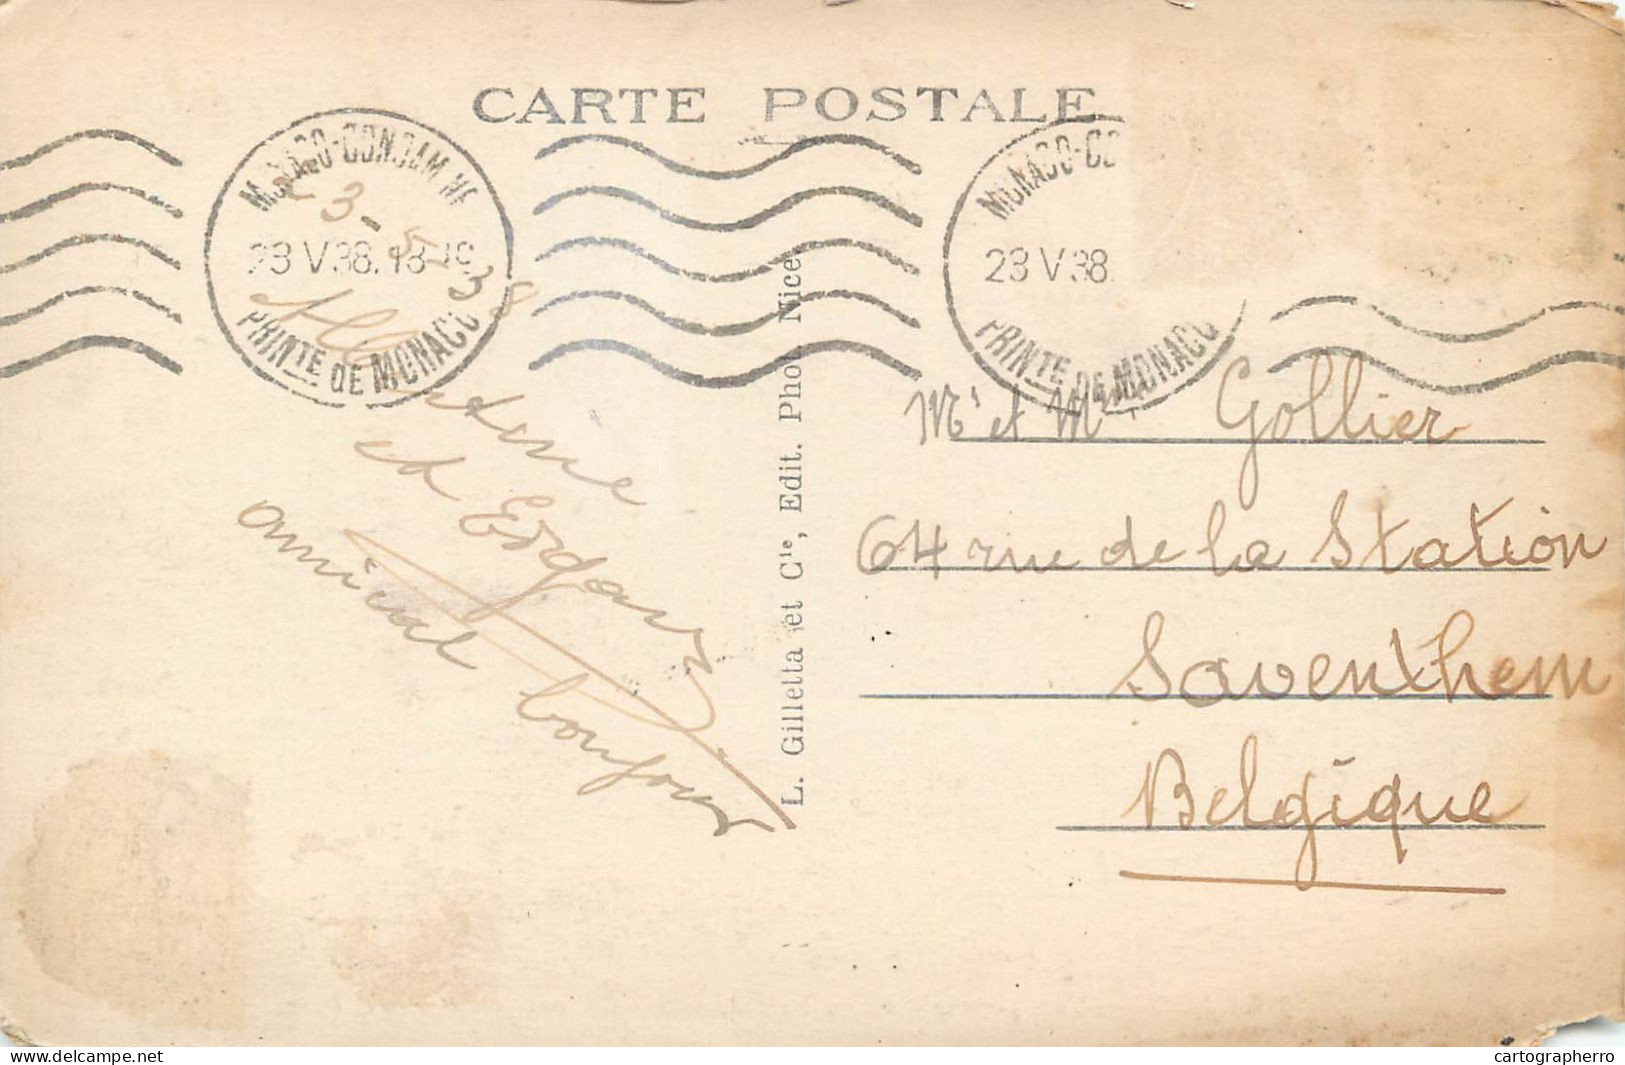 CARTE POSTALE
MONACO-CONDAMINE
23 V 38.18-19
PRINTE DE MONACO
MONACO-CO
23 V 38.
PRINTE DE MONACO
23-5-38
et Edgar
amical bonjour
L. Gilletta et Cie, Edit. Phot. Nice
Mr et Mme Gollier
64 rue de la Station
Saventhem
Belgique
www.delcampe.net
cartographerro